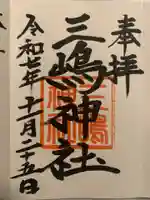 奉拝
三嶋神社
令和七年十二月二十五日